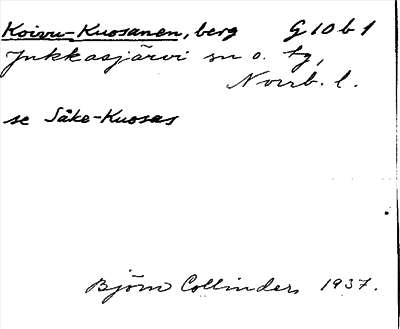 Koivu-Kuosanen, berg G10b1
Jukkasjärvi sn o. tg,
Norrb. l.
se Såke-Kuosas
Björn Collinders 1937.